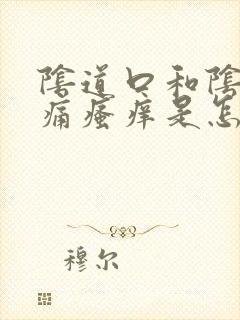 陰道口和陰
痛瘙痒是怎
穆尔